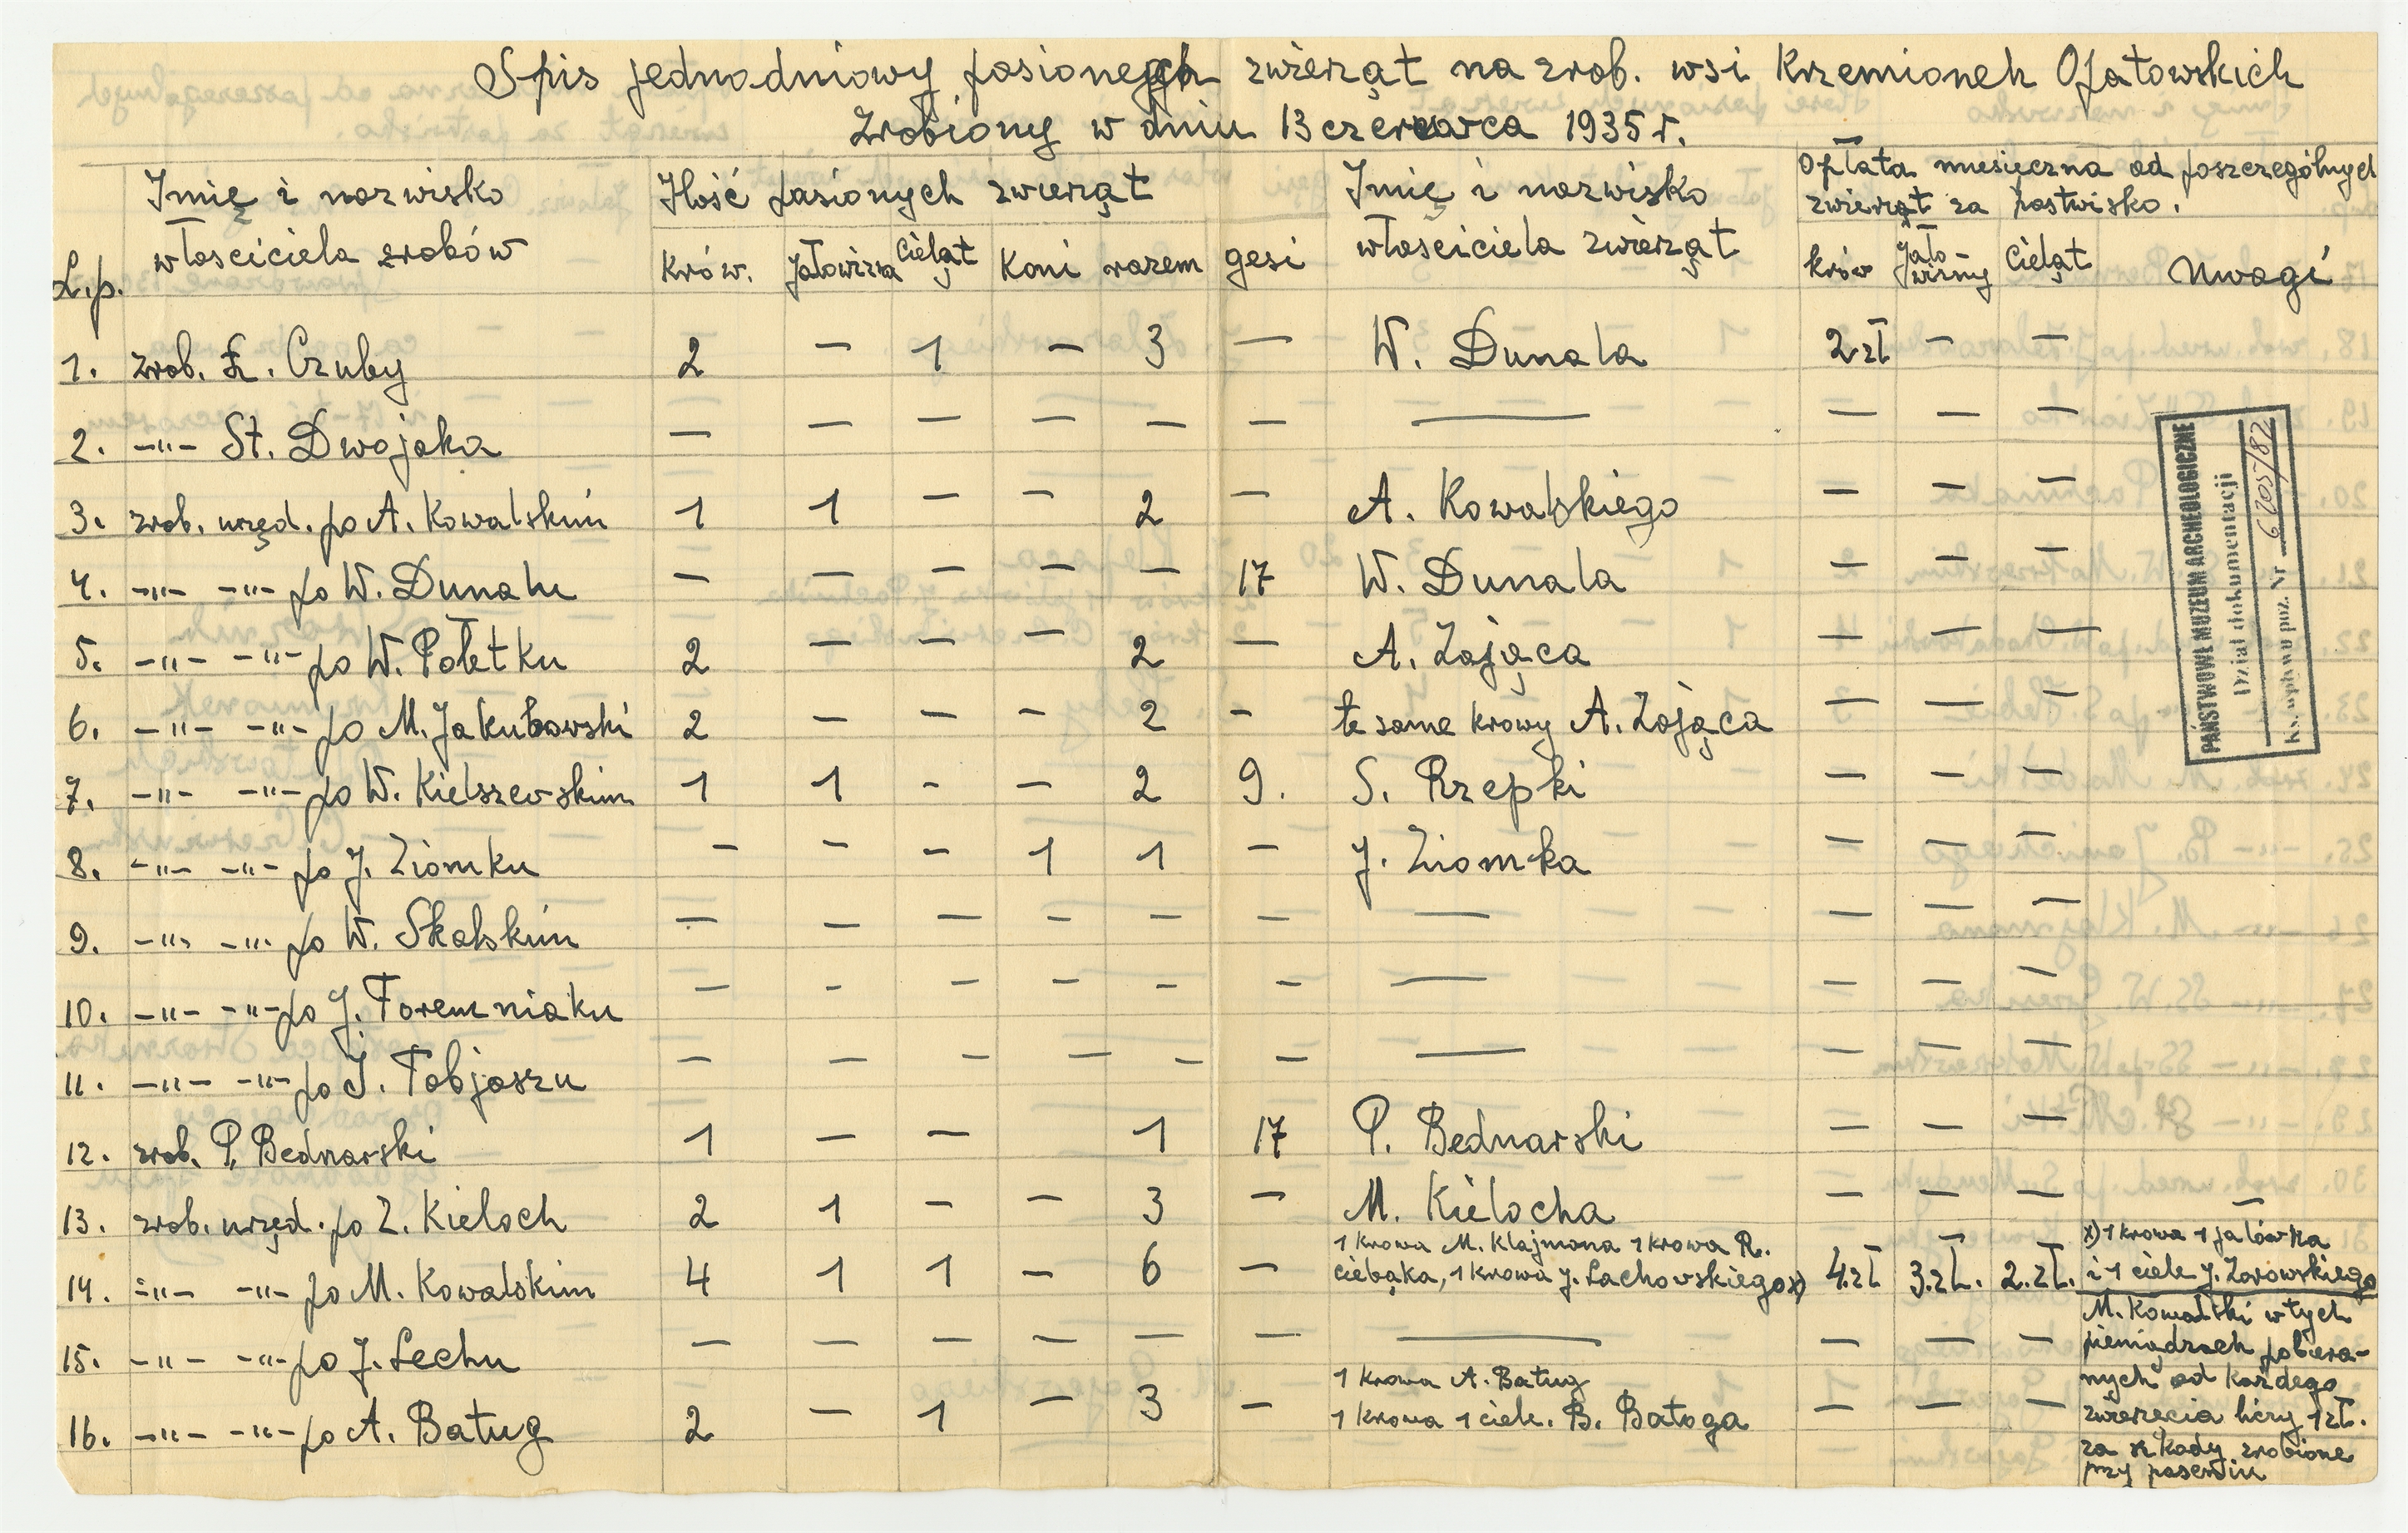 Spis jednodniowy pasionych zwierząt na zrob. wsi Krzemionek Opatowskich
Zrobiony w dniu 13 czerwca 1935 r.
L.p. Imię i nazwisko Ilość pasionych zwierząt Imię i nazwisko Opłata miesięczna od poszczególnych
właściciela zrobów zwierząt za pastwisko.
Krów. Jałowizna Cieląt Koni razem gęsi właściciela zwierząt krów Jało-wizny Cieląt Uwagi
1. zrob. Ł. Czuby 2 — 1 — 3 — W. Dunala 2 zł — —
2. —"— St. Dwojaka — — — — — — — — — —
3. zrob. urzęd. po A. Kowalskim 1 1 — — 2 — A. Kowalskiego — — —
4. —"— —"— po W. Dunalu — — — — — 17 W. Dunala — — —
5. —"— —"— po W. Połetku 2 — — — 2 — A. Zająca — — —
6. —"— —"— po M. Jakubowski 2 — — — 2 — te same krowy A. Zająca — — —
7. —"— —"— po W. Kielszewskim 1 1 - — 2 9. S. Rzepki — — —
8. —"— —"— po J. Ziomku — — — 1 1 — J. Ziomka — — —
9. —"— —"— po W. Skalskim — — — — — — — — — —
10. —"— —"— po J. Foremniaku — - — — - — — — — —
11. —"— —"— po J. Tobjaszu — — — — — — — — — —
12. zrob. P. Bednarski 1 — — 1 17 P. Bednarski — — —
13. zrob. urzęd. po Z. Kieloch 2 1 — — 3 — M. Kielocha — — — —
14. —"— —"— po M. Kowalskim 4 1 1 — 6 — 1 krowa M. Klajmona 1 krowa R.
ciebąka, 1 krowa J. Lachowskiego x) 4.zł 3.zł. 2.zł. x) 1 krowa 1 jałówka
i 1 ciele J. Zarowskiego
15. —"— —"— po J. Lechu — — — — — — — — — —
16. —"— —"— po A. Batug 2 — 1 — 3 — 1 krowa A. Batug
1 krowa 1 ciele. B. Batoga — — —
M. Kowalski w tych
pieniądzach pobiera-
nych od każdego
zwierzęcia liczy 1 zł.
za szkody zrobione
przy pasieniu
PAŃSTWOWE MUZEUM ARCHEOLOGICZNE
Dział dokumentacji
Ks. wpływu poz. Nr 6205/82